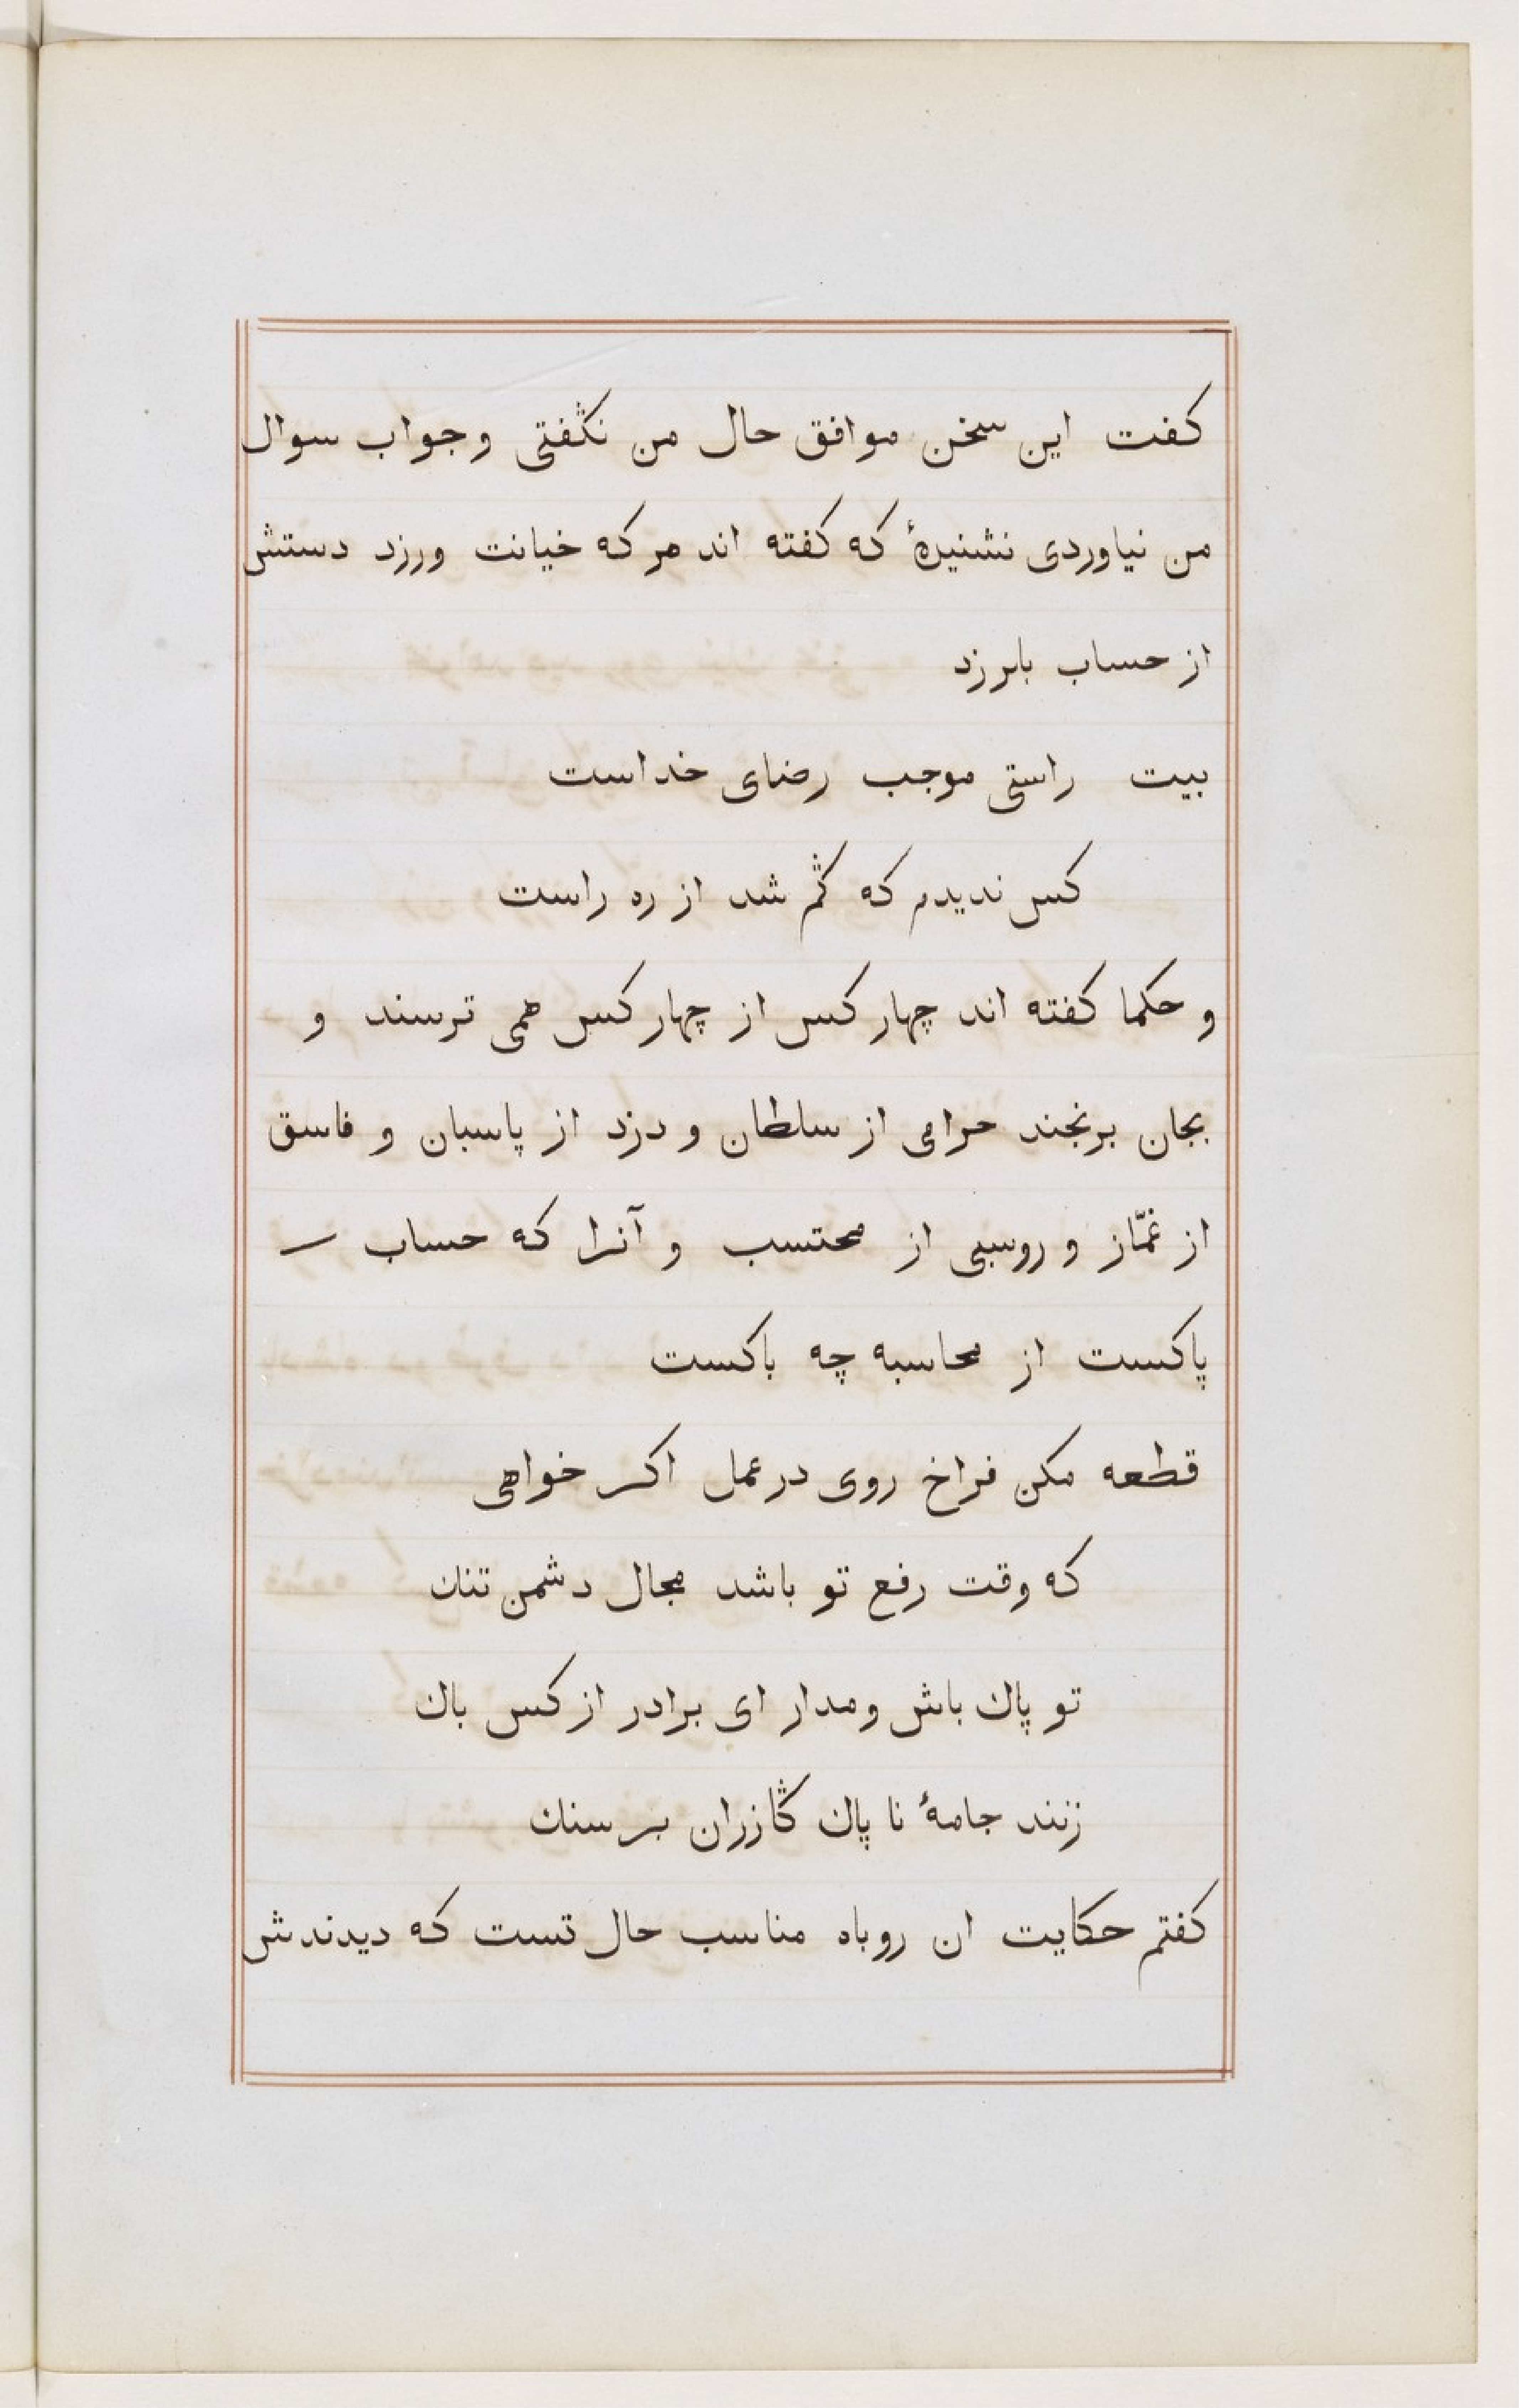 كفت این سخن موافق حال من نڭفتی و جواب سوال
من نیاوردی نشنیدۀ که كفته اند هر که خیانت ورزد دستش
از حساب بلرزد
بیت راستی موجب رضای خداست
کس ندیدم که ڭم شد از ره راست
و حکما كفته اند چهار کس از چهار کس همی ترسند و
بجان برنجند حرامی از سلطان و دزد از پاسبان و فاسق
از غمّاز و روسپی از محتسب و آنرا که حساب
پاکست از محاسبه چه باکست
قطعه مکن فراخ روی در عمل اكر خواهی
که وقت رفع تو باشد مجال دشمن تنك
تو پاك باش و مدار ای برادر از کس باك
زنند جامۀ نا پاك ڭازران بر سنك
كفتم حکایت ان روباه مناسب حال تست که دیدندش